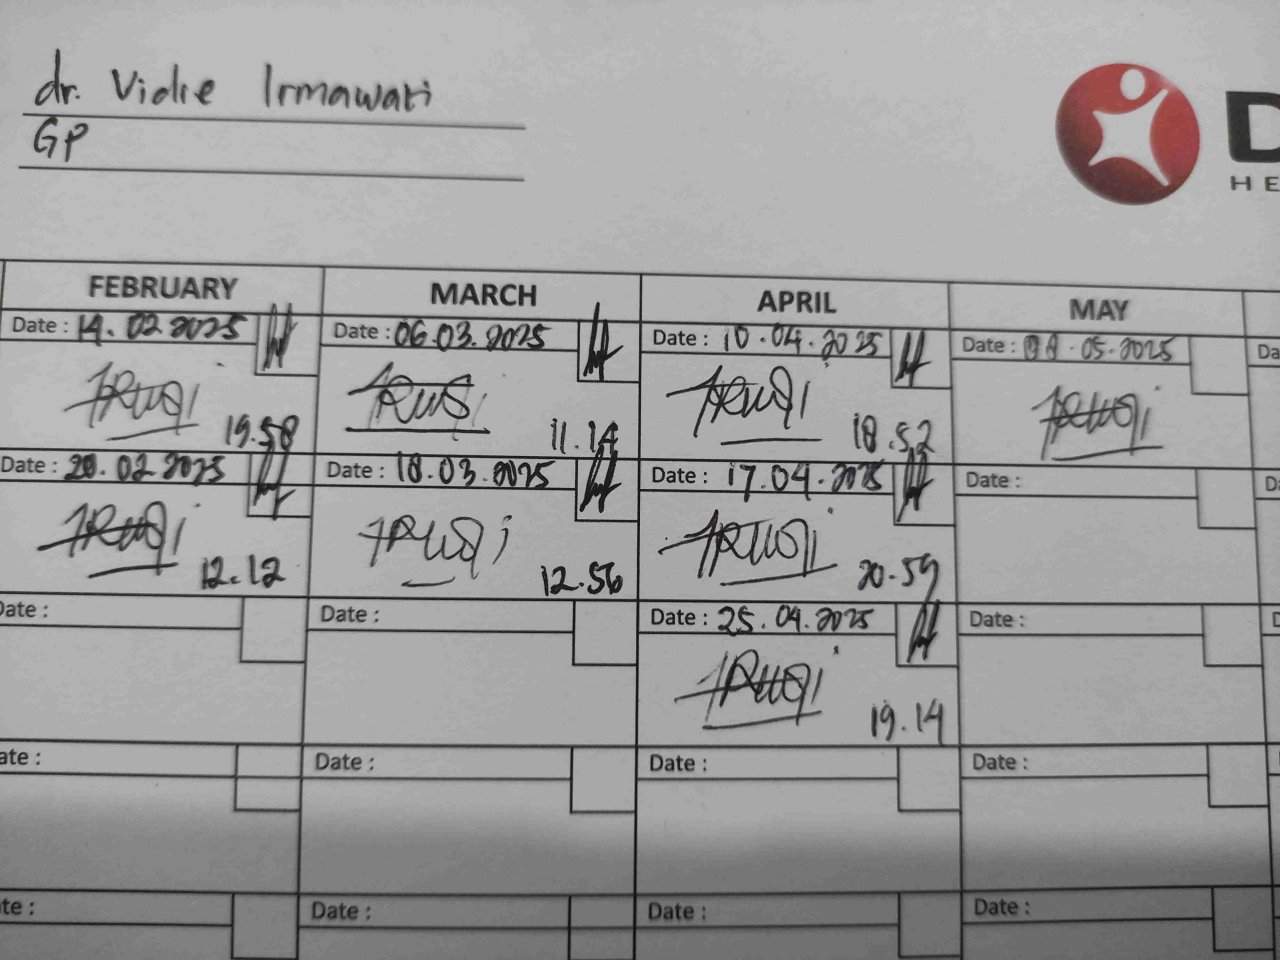 dr. Vidie Irmawati
GP
D
HE
FEBRUARY MARCH APRIL MAY
Date : 14.02.2025 Date : 06.03.2025 Date : 10.04.2025 Date : .05.2025 Da
19.58 11.14 18.52
Date : 20.02.2025 Date : 18.03.2025 Date : 17.04.2025 Date : Da
12.12 12.56 20.59
Date : Date : Date : 25.04.2025 Date : D
19.14
ate : Date : Date : Date :
te : Date : Date : Date :